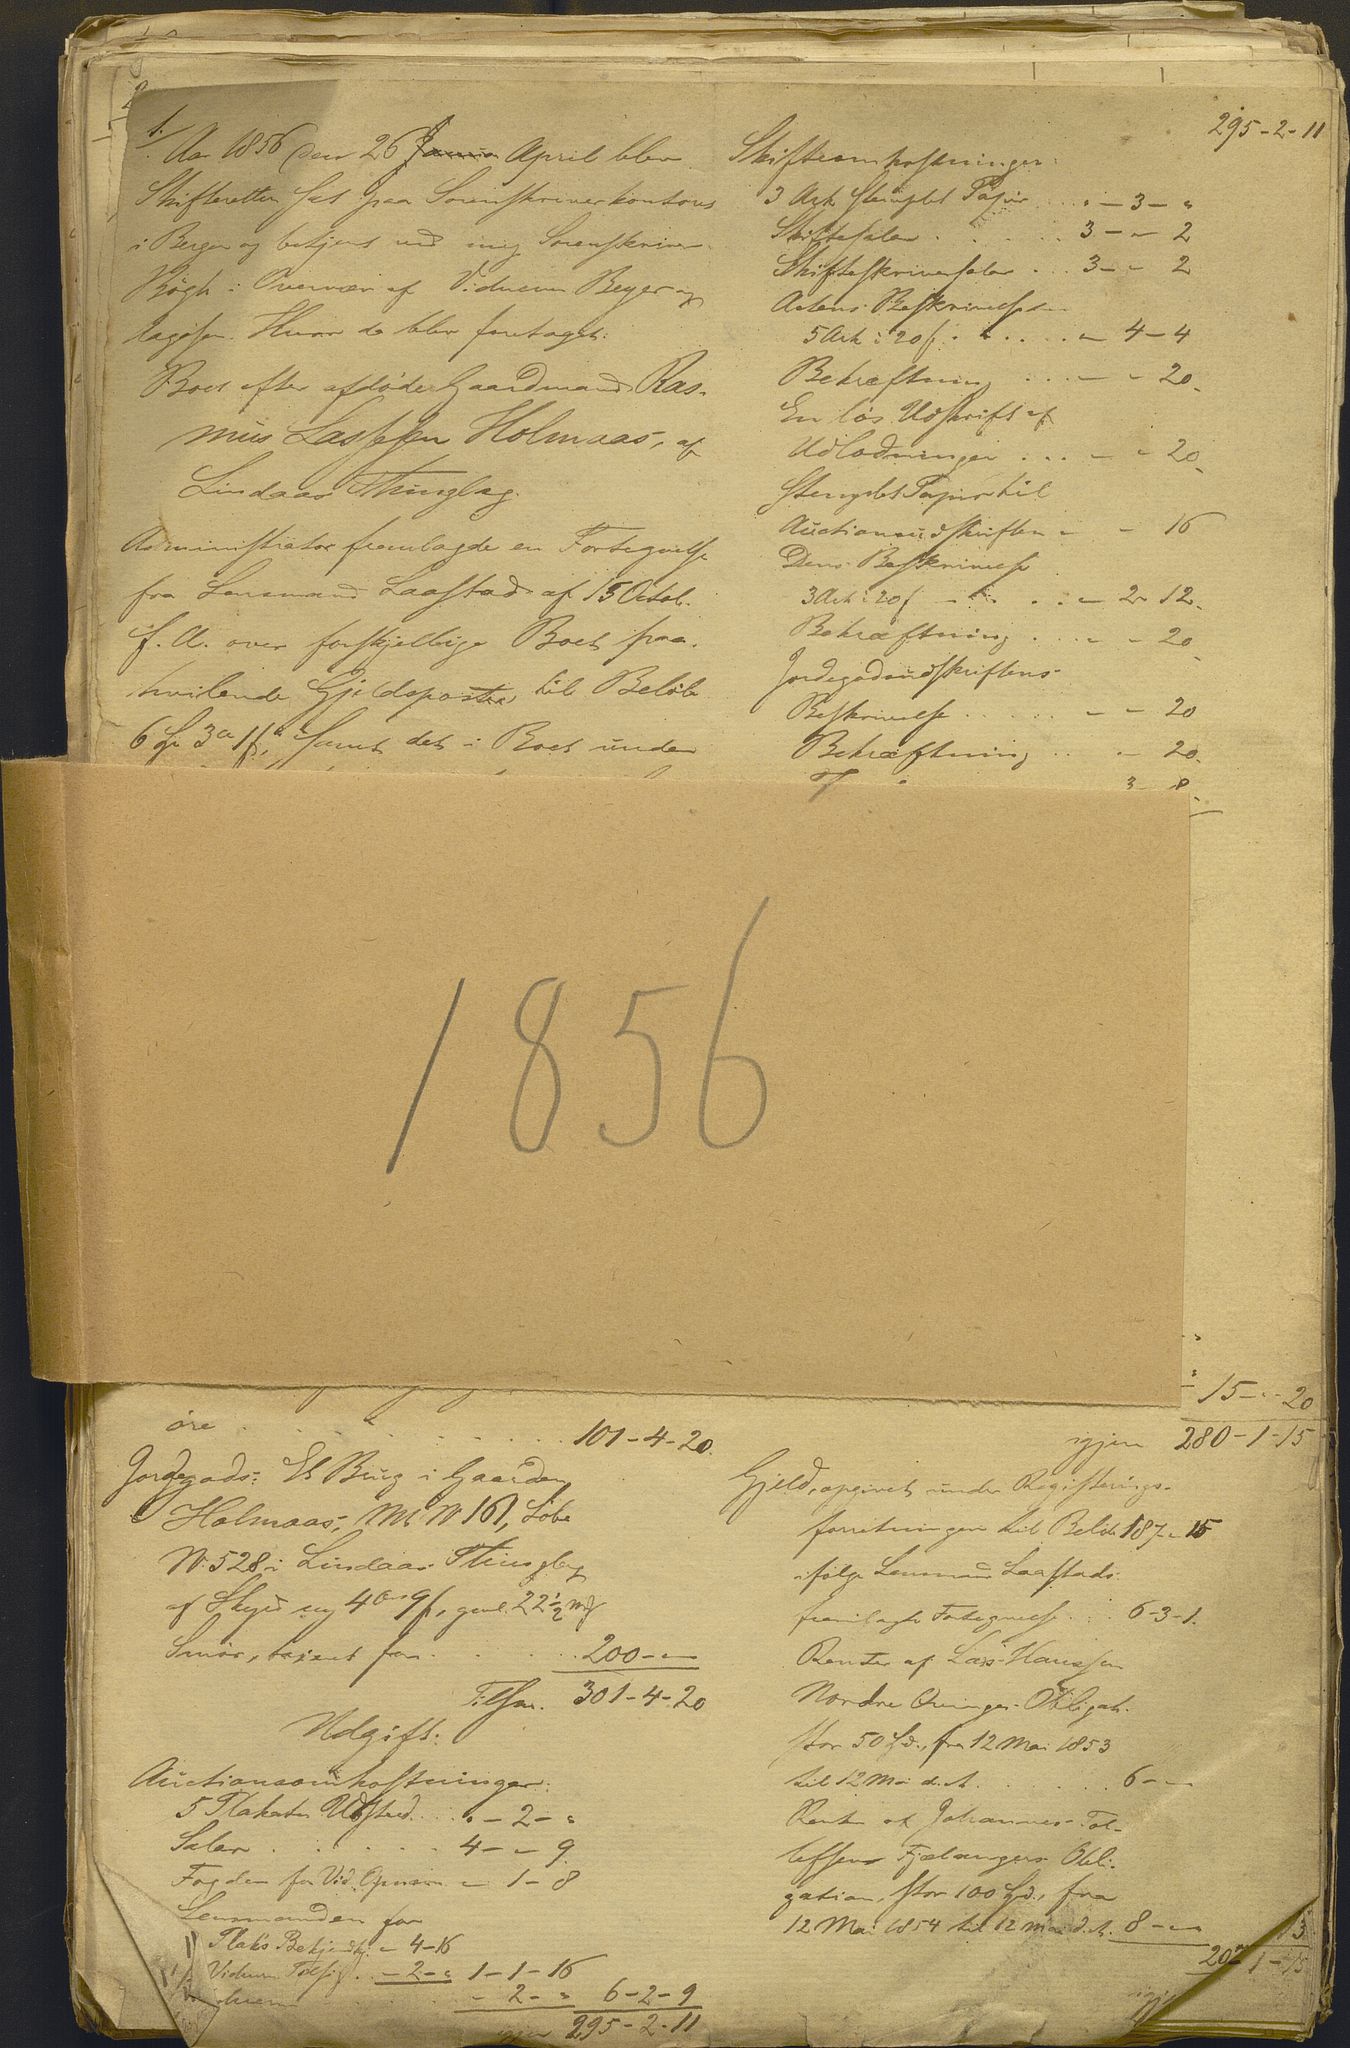 1.
Aar 1856 den 26 April blev
Skifteretten sat paa Sorenskriverkontoret
i Bergen og betjent ved mig Sorenskriver
Bøgh i Overvær af Vidnerne Beyer og
Aagesen. Hvor da blev foretaget:
Boet efter afdøde Gaardmand Ras-
mus Lassesen Holmaas, af
Lindaas Thinglag.
Administrator fremlagde en Fortegnelse
fra Lensmand Laastad af 15 Octob.
f. A. over forskjellige Boet paa-
hvilende Gjeldsposter til Beløb
6 3 1 samt det i Boet under
1856
øre 101-4-20.
Jordegods: Et Brug i Gaarden
Holmaas, Mt N 161, Løbe
N. 528 i Lindaas Thinglag
af Skyld ny 4 9, gml. 22½
Smør, taxeret for 200-
Tilsm. 301-4-20
Udgift:
Auctionsomkostninger:
5 Plakater Udsted. " - 2 - "
Salær 4 - - 9
Fogden for - 1 - 8
Lensmanden for
Plak's Bekjendtg. - 4-16
- 2 - " 1-1-16
- 2 - " 6-2-9
igjen 295-2-11
295-2-11
Skifteomkostninger:
3 Ark stemplet Papir " - 3 - "
Skiftesalær 3 - - 2
Skifteskriversalær 3 - - 2
Actens Beskrivelse
5 Ark à 20 - 4-4
Bekræftning - - 20
En løs Udskrift af
Udlodningen - - 20
Stemplet Papir til
Auctionsudskriften - - 16
Dens Beskrivelse
3 Ark à 20 - 2-12
Bekræftning - - 20
Jordegodsudskriftens
Beskrivelse - - 20
Bekræftning - - 20
3 8
15 - " - 20
igjen 280-1-15
Gjeld, opgivet under Registerings-
forretningen til Beløb 187 - 15
ifølge Lensmand Laastads
fremlagte Fortegnelse 6-3-1.
Renter af Lars Hanssen
Nordre Obligat.
stor 50 fra 12 Mai 1853
til 12 Mai d. A. 6 -
Renter af Johannes Tol-
lefsen Fjelangers Obli-
gation, stor 100 fra
12 Mai 1854 til 12 Mai d. A. 8 -
1-15